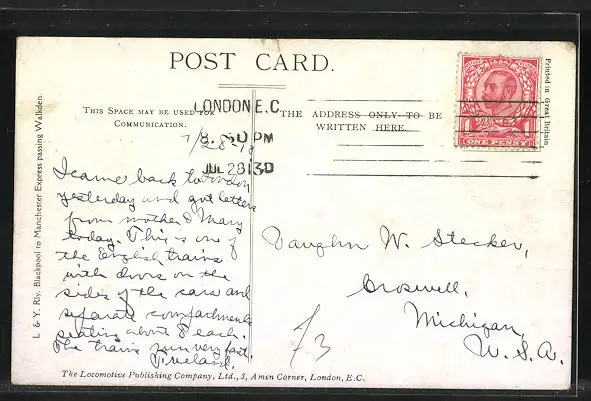 POST CARD.
THIS SPACE MAY BE USED FOR
COMMUNICATION.
THE ADDRESS ONLY TO BE
WRITTEN HERE.
LONDON E.C.
8.30 PM
JUL 28 13
ONE PENNY
Printed in Great Britain
L & Y. Rly. Blackpool to Manchester Express passing Walkden.
I came back to London
yesterday and got letters
from mother & Mary
today. This is one of
the English trains
with doors on the
sides of the cars and
separate compartments
seating about 8 each.
The trains run very fast.
Vaughn W. Stecker,
Croswell,
Michigan,
U.S.A.
The Locomotive Publishing Company, Ltd., 3, Amen Corner, London, E.C.